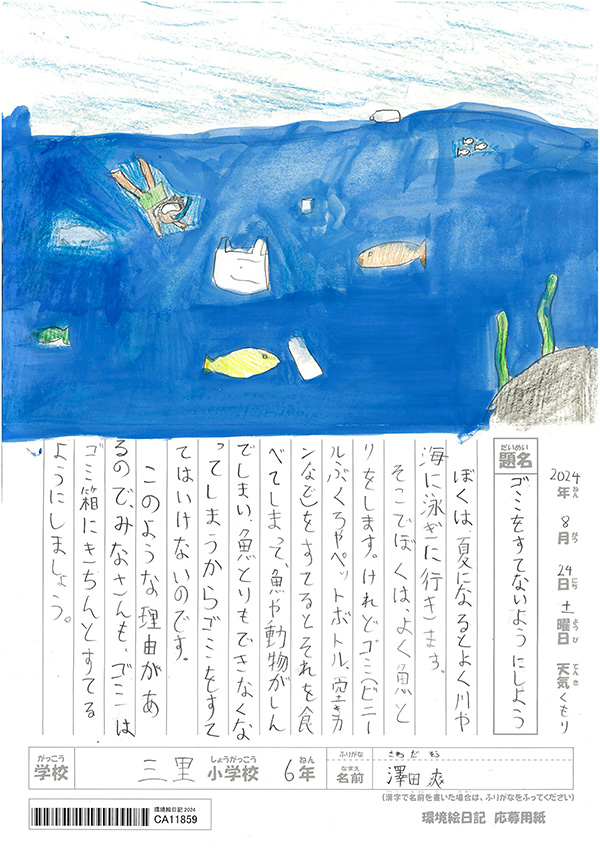 2024年ねん 8月がつ 24日にち 土曜日ようび 天気てんき くもり
題名だいめい ゴミをすてないようにしよう
ぼくは、夏になるとよく川や
海に泳ぎに行きます。
そこでぼくは、よく魚と
りをします。けれどゴミ(ビニー
ルぶくろやペットボトル、空きカ
ンなど)をすてるとそれを食
べてしまって、魚や動物がしん
でしまい、魚とりもできなくな
ってしまうからゴミをすて
てはいけないのです。
このような理由があ
るので、みなさんも、ゴミは
ゴミ箱にきちんとすてる
ようにしましょう。
学校がっこう 三里 小学校しょうがっこう 6年ねん
ふりがな さわだ そう
名前なまえ 澤田 爽
(漢字で名前を書いた場合は、ふりがなをふってください)
環境絵日記 2024
CA11859
環境絵日記 応募用紙